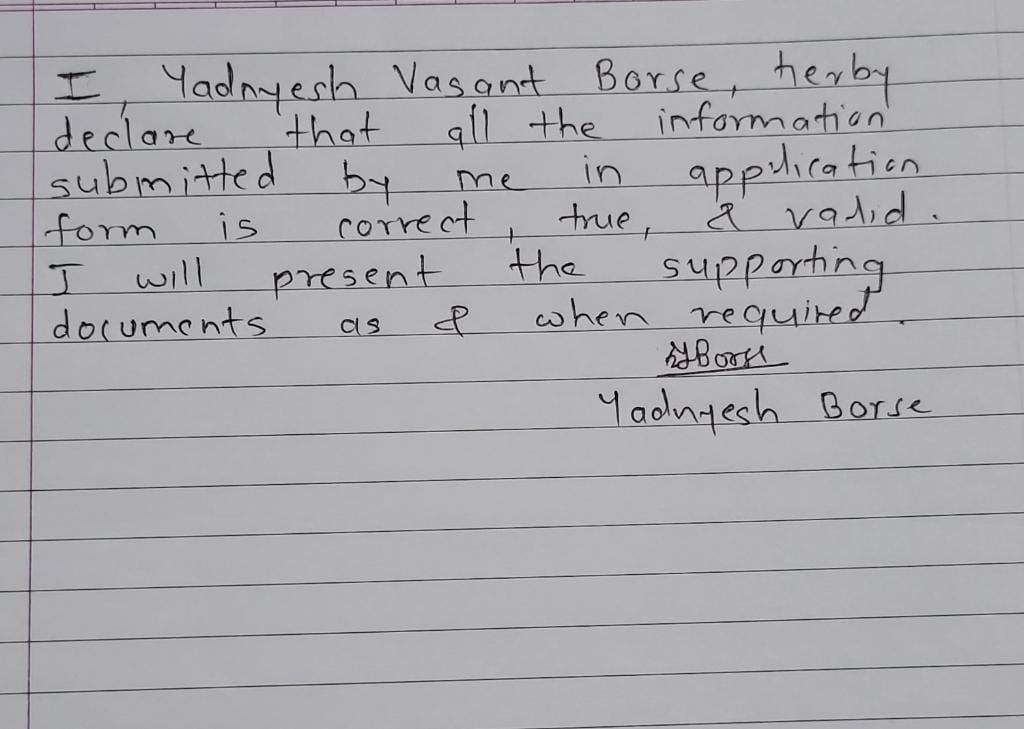 I, Yadnyesh Vasant Borse, herby
declare that all the information
submitted by me in application
form is correct, true, & valid.
I will present the supporting
documents as & when required.
Yadnyesh Borse